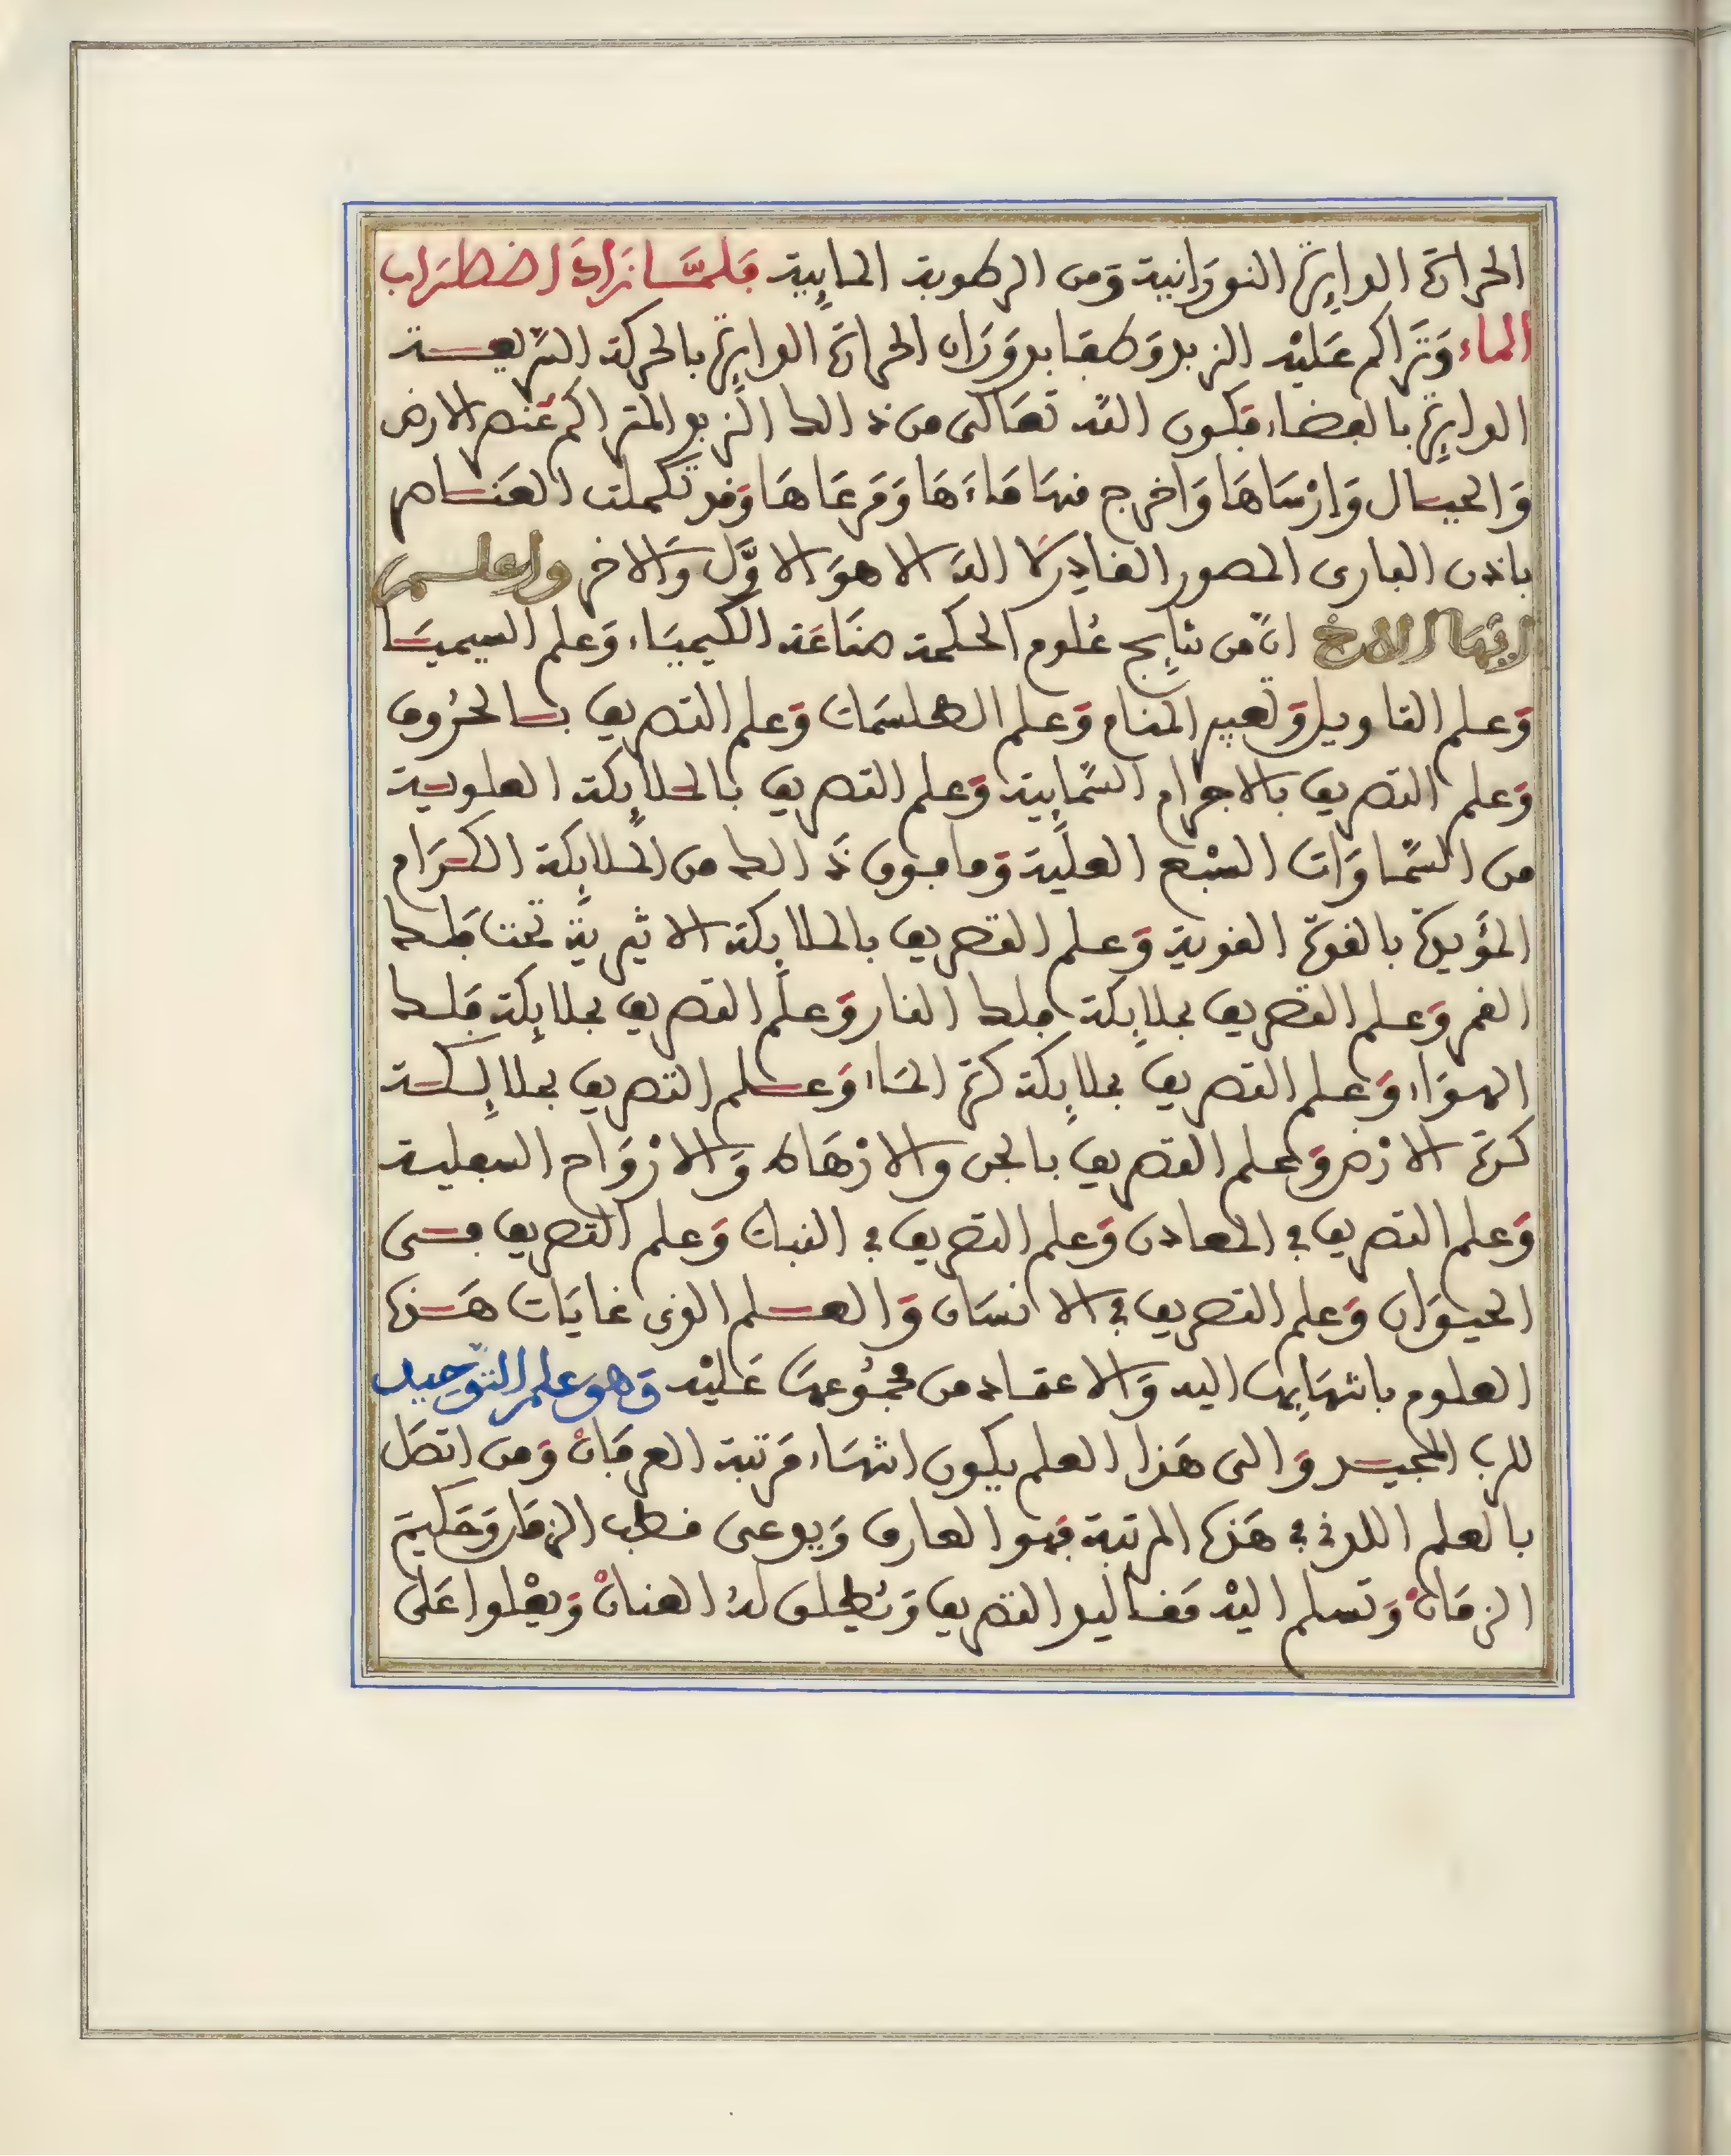 الحرارة الدايرة النورانية ومن الرطوبة المايية فلما زاد اضطراب
الماء وتراكم عليه الزبد وطفا بدوران الحرارة الدايرة بالحركة السريعة
الدايرة بالفضاء فكون الله تعالى من ذالك الزبد المتراكم عنصر الارض
والجبال وارساها واخرج منها ماءها ومرعاها وقد تكملت العناصر
باذن البارى المصور القادر لا اله الا هو الاول والاخر واعلم
ايها الاخ ان من نتايج علوم الحكمة صناعة الكيمياء وعلم السيميا
وعلم التاويل وتعبير المنام وعلم الطلسمات وعلم التصريف بالحروف
وعلم التصريف بالاجرام السمايية وعلم التصريف بالملايكة العلوية
من السماوات السبع العلية وما فوق ذالك من الملايكة الكرام
المؤيدة بالقوة القوية وعلم التصريف بالملايكة الاثيرية تحت فلك
القمر وعلم التصريف بملايكة فلك النار وعلم التصريف بملايكة فلك
الهواء وعلم التصريف بملايكة كرة الماء وعلم التصريف بملايكة
كرة الارض وعلم التصريف بالجن والارهاط والارواح السفلية
وعلم التصريف في المعادن وعلم التصريف في النبات وعلم التصريف فى
الحيوان وعلم التصريف في الانسان والعلم الذى غايات هذه
العلوم بانتهايها اليه والاعتماد من مجموعها عليه وهو علم التوحيد
للرب المجيد والى هذا العلم يكون انتهاء مرتبة العرفان ومن اتصل
بالعلم اللدني في هذه المرتبة فهو العارف ويدعى قطب الزمان وحكيم
الزمان وتسلم اليه مقاليد التصريف ويطلق له العنان ويعلوا على